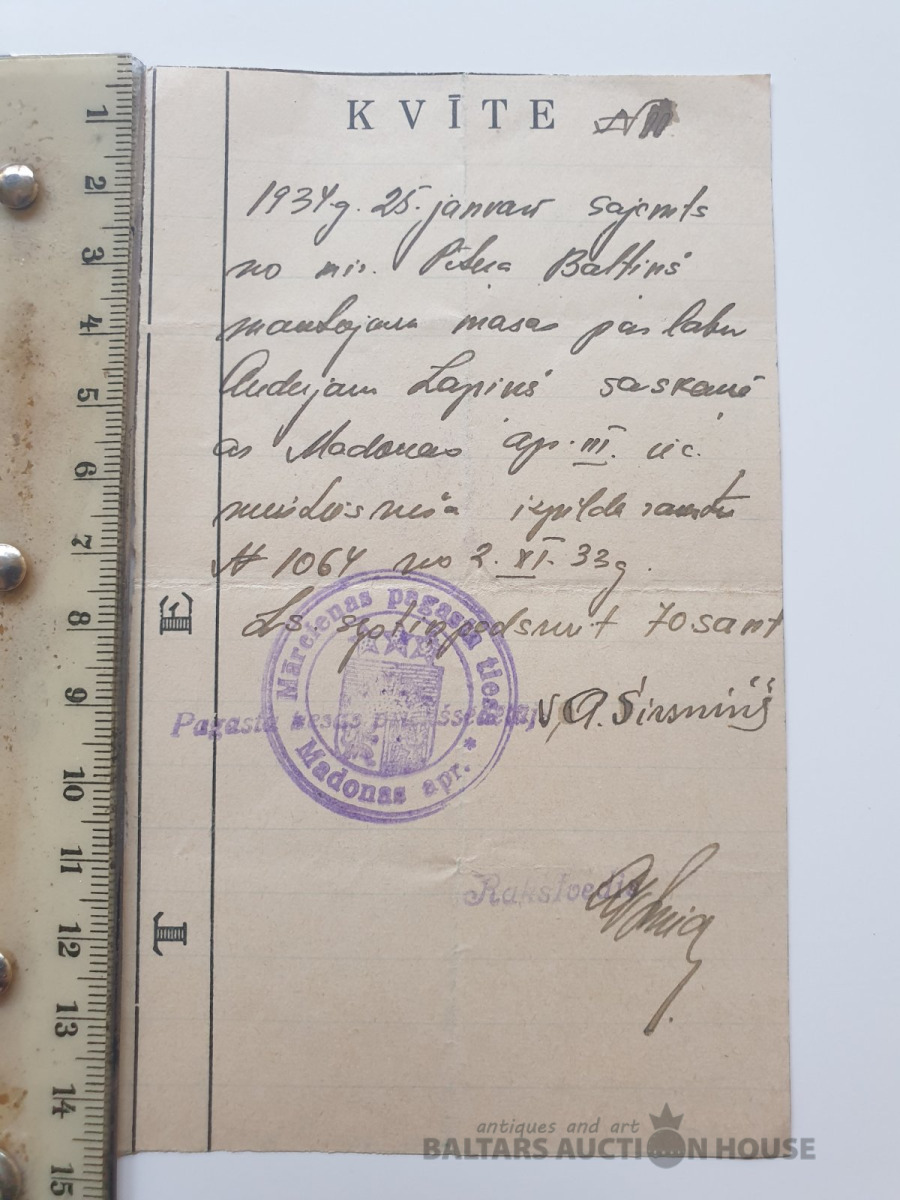 KVĪTE №
1934.g. 25. janvarī saņemts
no mir. Pētera Baltiņš
mantojuma masas par labu
Andrejam Lapiņš saskaņā
ar Madonas apr. III. iec.
miertiesneša izpildu rakstu
№ 1064 no 2. XI. 33 g.
Ls septiņpadsmit 70 sant
Mārcienas pagasta tiesa
Madonas apr. *
Pagasta tiesas priekšsēdētājs
A. Sirsniņš
Rakstvedis
E
T
1 2 3 4 5 6 7 8 9 10 11 12 13 14 15
antiques and art
BALTARS AUCTION HOUSE